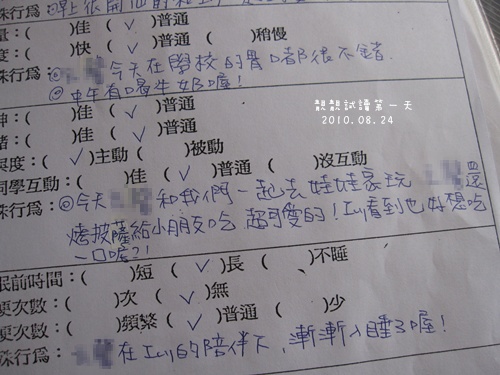 殊行為：早上很開心的和
量：( )佳 (✓)普通
度：( )快 (✓)普通 ( )稍慢
殊行為：◎ 今天在學校的胃口都很不錯.
◎中午有喝牛奶喔!
靚靚試讀第一天
2010.08.24
神：( )佳 (✓)普通
緒：( )佳 (✓)普通
與度：(✓)主動 ( )被動
同學互動：( )佳 (✓)普通 ( )沒互動
殊行為：◎今天 和我們一起去娃娃家玩 還
烤披薩給小朋友吃 超可愛的! Ivy看到也好想吃
一口喔?!
眠前時間：( )短 (✓)長 ( )不睡
便次數：( )次 (✓)無
更次數：( )頻繁 (✓)普通 ( )少
殊行為： 在Ivy的陪伴下、漸漸入睡了喔!